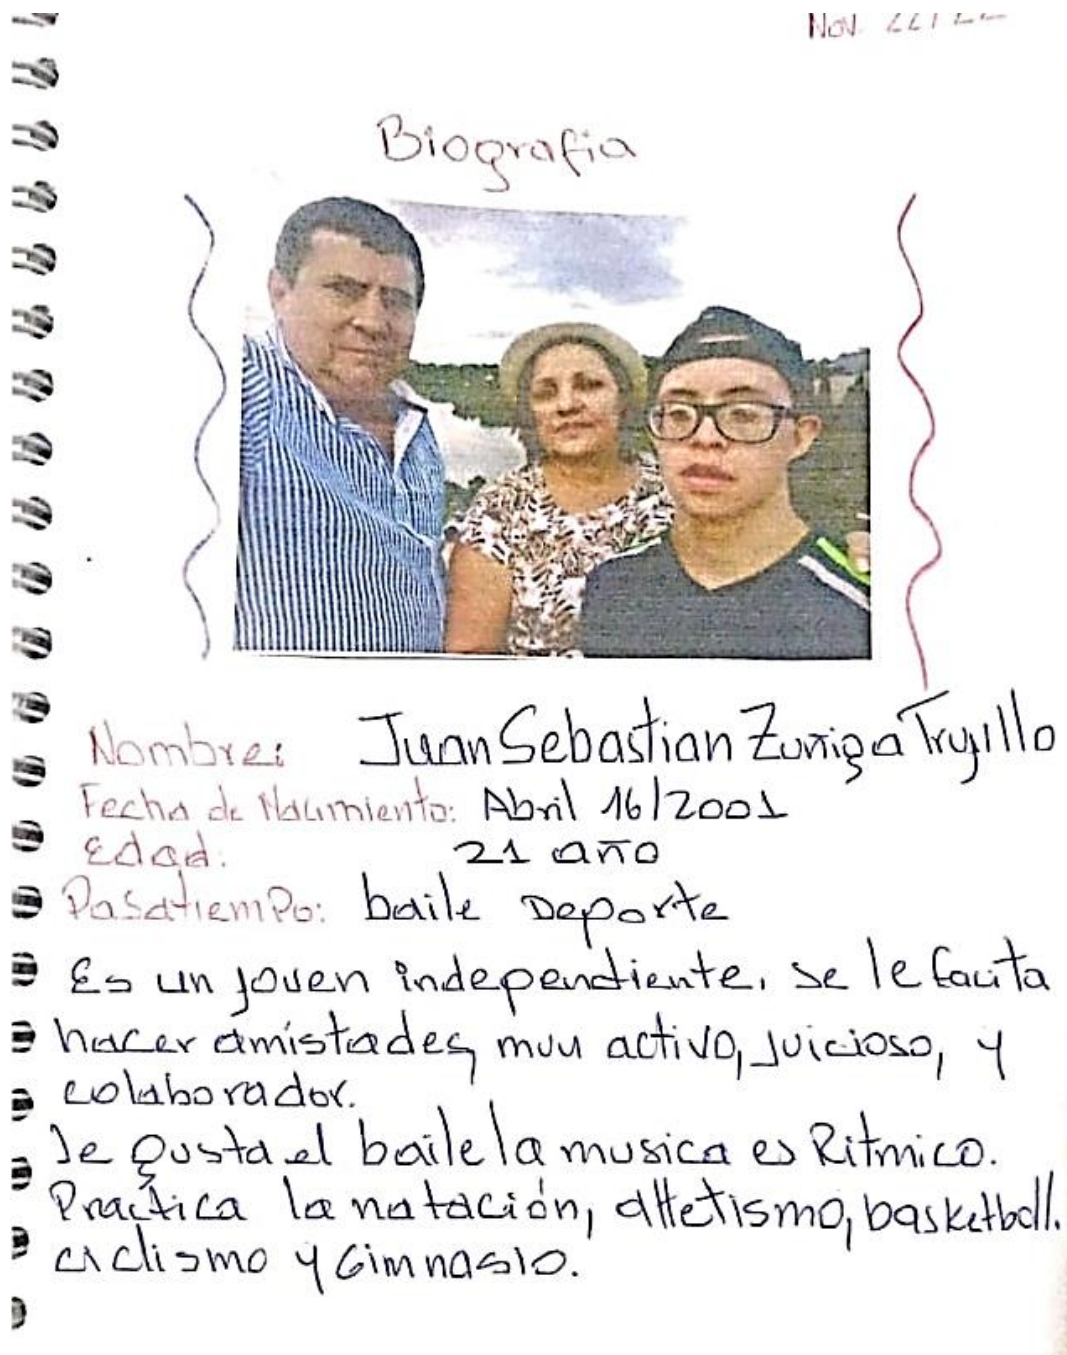 Nov. 22/22
Biografia
Nombre: Juan Sebastian Zuñiga Trujillo
Fecha de Nacimiento: Abril 16/2001
Edad: 21 año
Pasatiempo: baile Deporte
Es un joven independiente, se le facita
hacer amistades, muu activo, Juicioso, y
colaborador.
le gusta el baile la musica es Ritmico.
Practica la natación, attetismo, basketball.
ciclismo y Gimnasio.